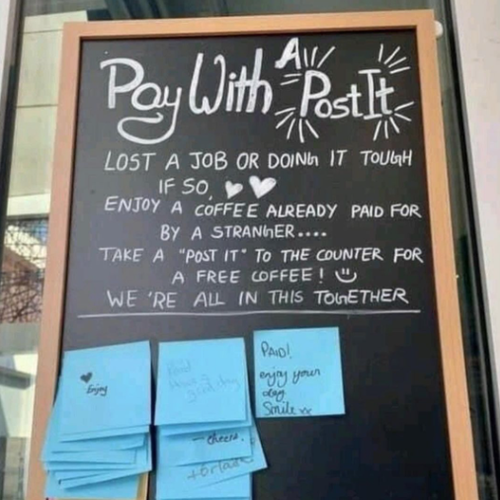 Pay With A Post It
LOST A JOB OR DOING IT TOUGH
IF SO,
ENJOY A COFFEE ALREADY PAID FOR
BY A STRANGER....
TAKE A "POST IT" TO THE COUNTER FOR
A FREE COFFEE!
WE'RE ALL IN THIS TOGETHER
Enjoy
have a
good day
- cheers.
PAID!
enjoy your
day
Smile xx